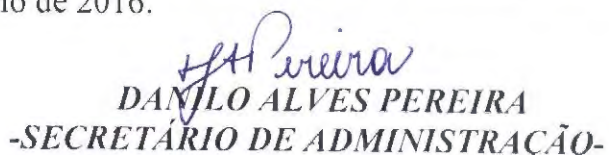 de 2016.
Pereira
DANILO ALVES PEREIRA
-SECRETÁRIO DE ADMINISTRAÇÃO-